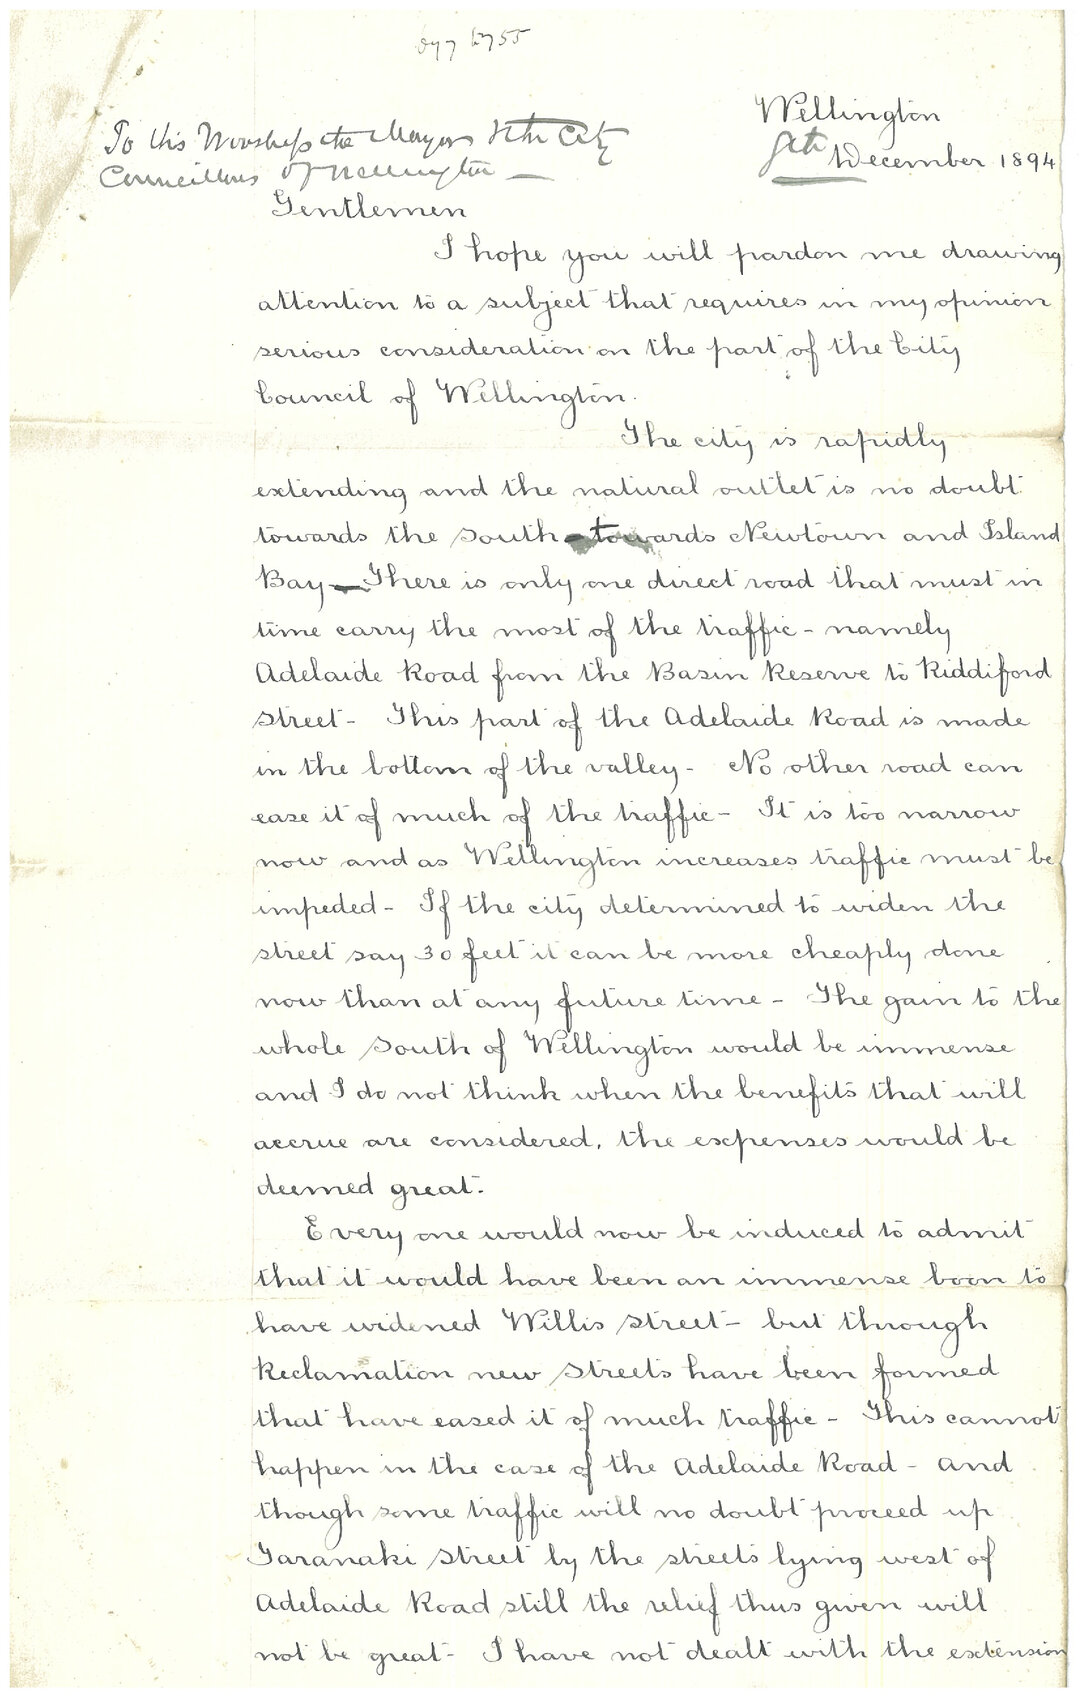 Wellington
To His Worship the Mayor & the City
December 1894
Councillors of Wellington —
Gentlemen
I hope you will pardon me drawing
attention to a subject that requires in my opinion
serious consideration on the part of the City
Council of Wellington.
The city is rapidly
extending and the natural outlet is no doubt
towards the south - towards Newtown and Island
Bay — There is only one direct road that must in
time carry the most of the traffic - namely
Adelaide Road from the Basin Reserve to Riddiford
Street - This part of the Adelaide Road is made
in the bottom of the valley - No other road can
ease it of much of the traffic - It is too narrow
now and as Wellington increases traffic must be
impeded - If the city determined to widen the
street say 30 feet it can be more cheaply done
now than at any future time - The gain to the
whole South of Wellington would be immense
and I do not think when the benefits that will
accrue are considered, the expenses would be
deemed great.
Every one would now be induced to admit
that it would have been an immense boon to
have widened Willis Street - but through
Reclamation new streets have been formed
that have eased it of much traffic - This cannot
happen in the case of the Adelaide Road - and
though some traffic will no doubt proceed up
Taranaki Street by the streets lying west of
Adelaide Road still the relief thus given will
not be great - I have not dealt with the extension